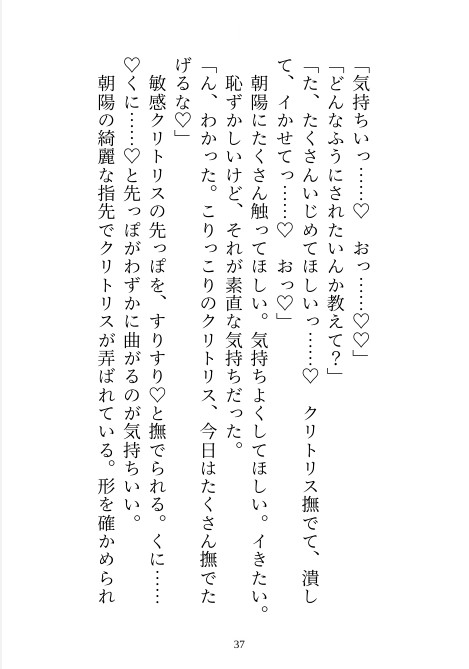 「気持ちいっ……♡　おっ……♡♡」
「どんなふうにされたいんか教えて？」
「た、たくさんいじめてほしいっ……♡　クリトリス撫でて、潰し
て、イかせてっ……♡　おっ♡」
朝陽にたくさん触ってほしい。気持ちよくしてほしい。イきたい。
恥ずかしいけど、それが素直な気持ちだった。
「ん、わかった。こりっこりのクリトリス、今日はたくさん撫でた
げるな♡」
敏感クリトリスの先っぽを、すりすり♡と撫でられる。くに……
♡くに……♡と先っぽがわずかに曲がるのが気持ちいい。
朝陽の綺麗な指先でクリトリスが弄ばれている。形を確かめられ
37